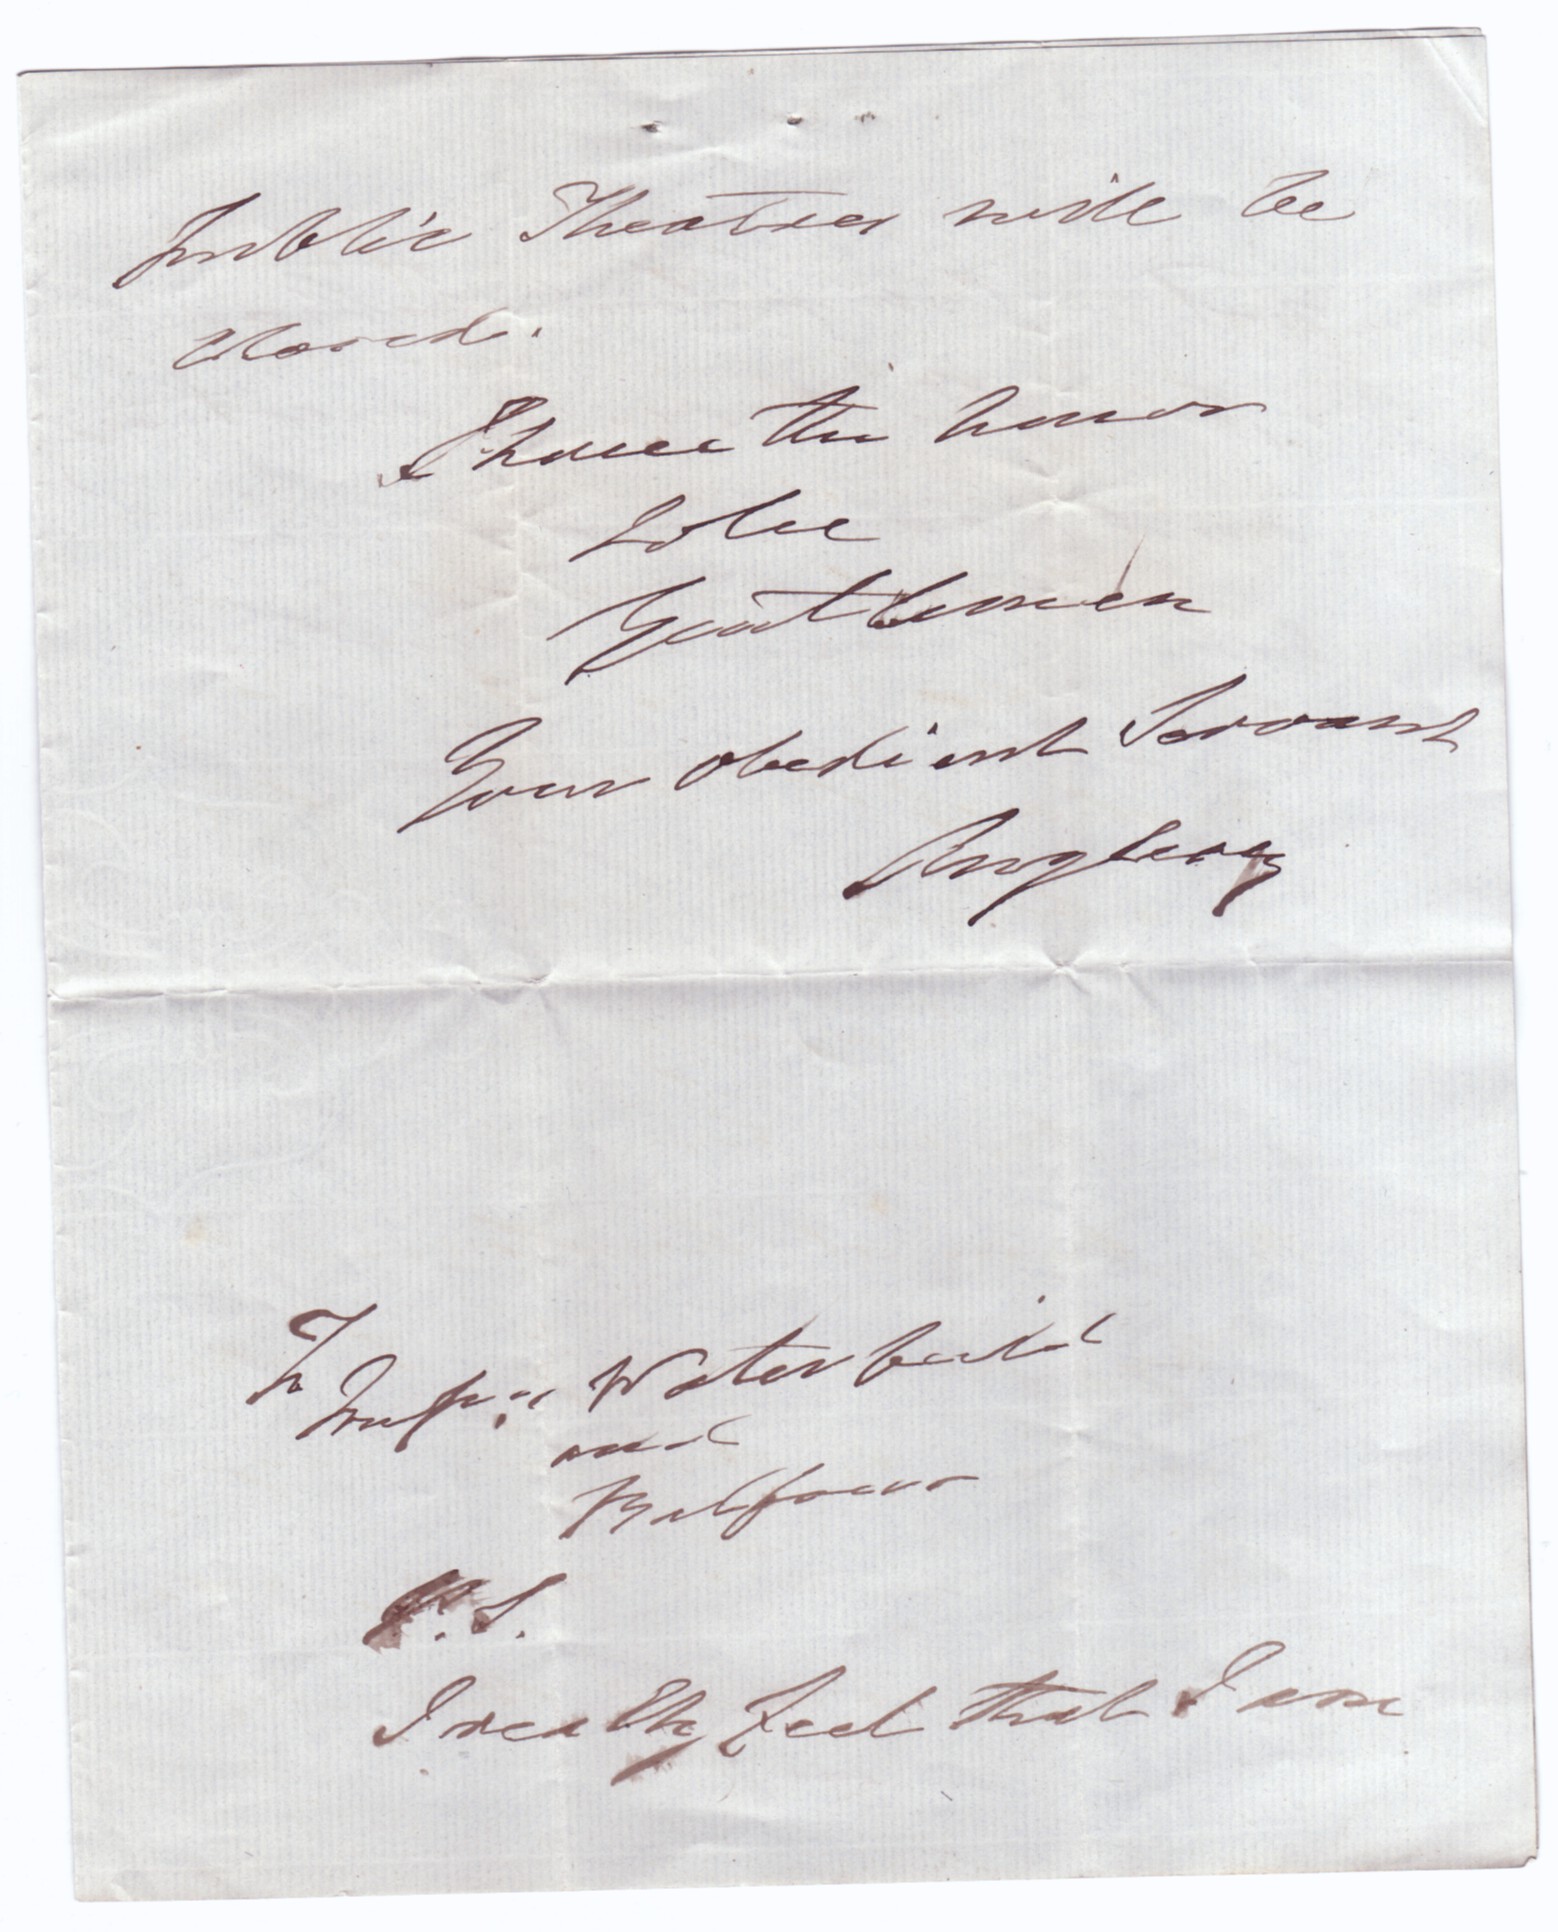 public Theatres will be
closed.
I have the honor
to be
Gentlemen
Your obedient Servant
Anglesey
To
Messrs Waterfield
and
Balfour
P.S.
I really feel that I am